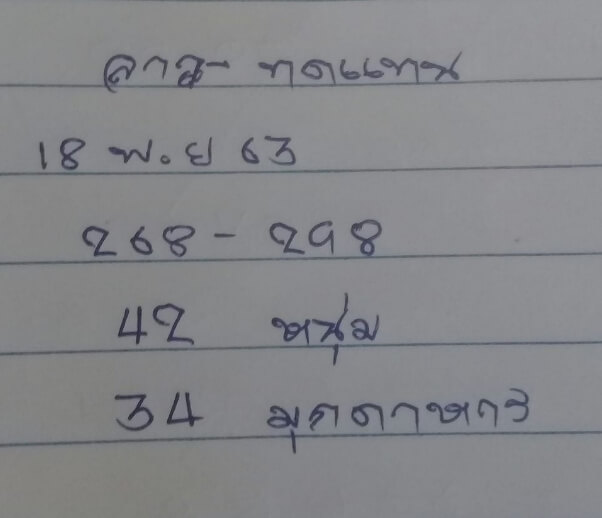 ลาว - ทดแทน
18 พ.ย 63
268 - 298
42 หนุ่ม
34 มุกดาหาร